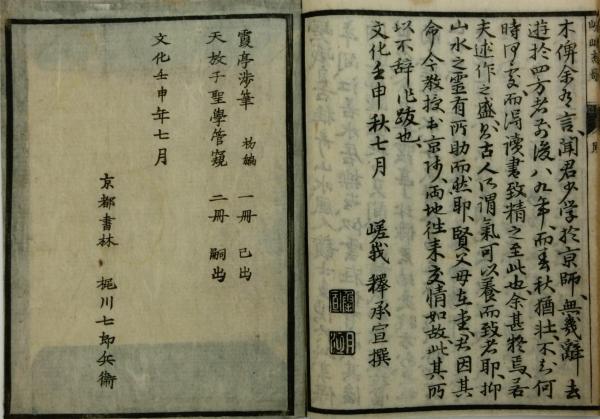 木俾余為言、聞君少学於京師、無幾辞去
遊於四方者前後八九年、而春秋猶壮、不知何
時何処、而得読書致精之至此也、余甚怪焉、若
夫述作之盛、則古人所謂氣可以養而致者耶、抑
山水之霊有所助而然耶、賢父母在堂、君因其
命、今教授于京师、両地往来交情如故、此其所
以不辞作跋也、
文化壬申秋七月　嵯峨　釋承宣撰
霞亭渉筆　初編　一冊　已出
天放子聖學管窺　二冊　嗣出
文化壬申年七月
京都書林　梶川七郎兵衛